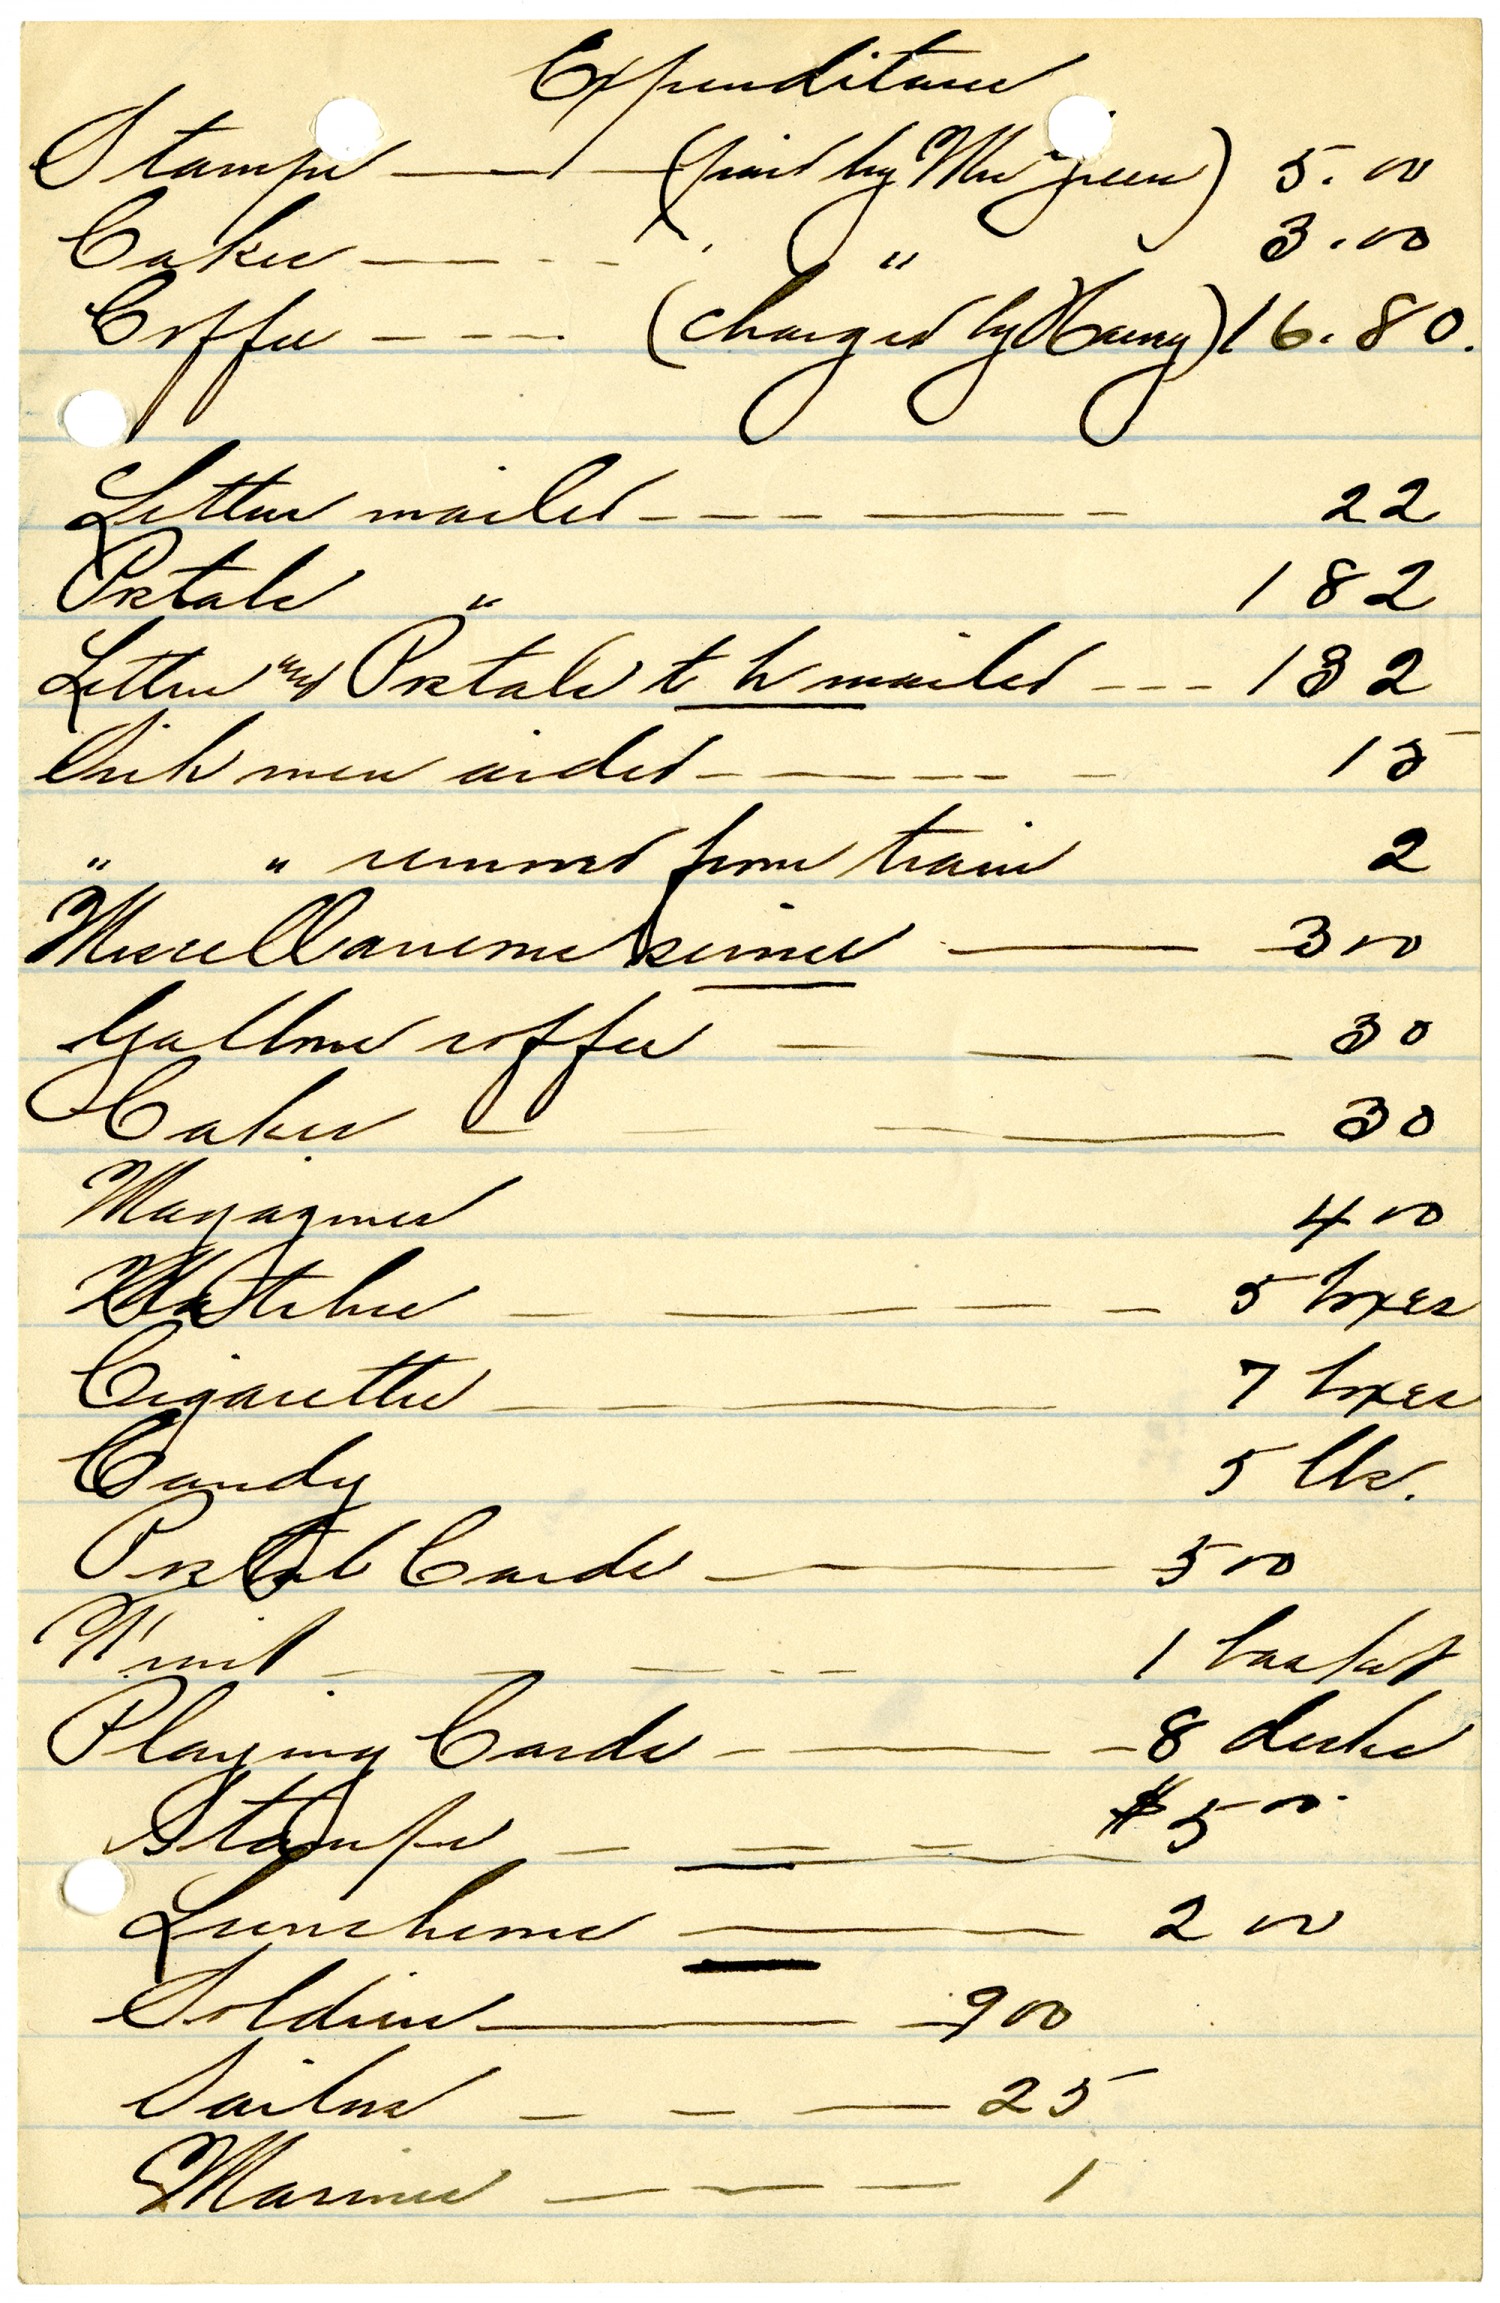 Expenditures
Stamps — — — (paid by Mrs Green) 5.00
Cakes — — - - - " " 3.00
Coffee — - - - (charged by Harvey) 16.80.
Letters mailed - - - - — — - 22
Postals " 182
Letters and Postals to be mailed - - - 132
Sick men aided - - — — - - - 15
" " removed from train 2
Miscellaneous services — — 300
Gallons coffee — — — 30
Cakes — — — — 30
Magazines 400
Matches — — — — — 5 boxes
Cigarettes — — — 7 boxes
Candy 5 lbs.
Postal Cards — — 500
Fruit — — — - - 1 basket
Playing Cards - — — 8 decks
Stamps — — — $5 00
Luncheons — — 2 00
Soldiers — — 900
Sailors — — — 25
Marines — — — 1